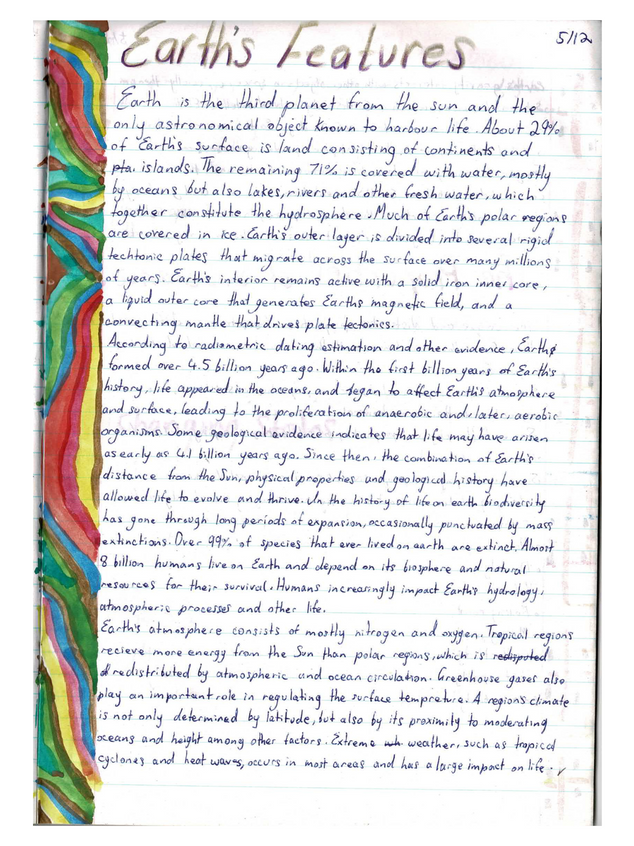 Earth's Features
5/12
Earth is the third planet from the sun and the
only astronomical object known to harbour life. About 29%
of Earth's surface is land consisting of continents and
pta. islands. The remaining 71% is covered with water, mostly
by oceans but also lakes, rivers and other fresh water, which
together constitute the hydrosphere. Much of Earth's polar regions
are covered in ice. Earth's outer layer is divided into several rigid
techtonic plates that migrate across the surface over many millions
of years. Earth's interior remains active with a solid iron inner core,
a liquid outer core that generates Earths magnetic field, and a
convecting mantle that drives plate tectonics.
According to radiometric dating estimation and other evidence, Earth
formed over 4.5 billion years ago. Within the first billion years of Earth's
history, life appeared in the oceans, and began to affect Earth's atmosphere
and surface, leading to the proliferation of anaerobic and, later, aerobic
organisms. Some geological evidence indicates that life may have arisen
as early as 4.1 billion years ago. Since then, the combination of Earth's
distance from the Sun, physical properties and geological history have
allowed life to evolve and thrive. In the history of life on earth biodiversity
has gone through long periods of expansion, occasionally punctuated by mass
extinctions. Over 99% of species that ever lived on earth are extinct. Almost
8 billion humans live on Earth and depend on its biosphere and natural
resources for their survival. Humans increasingly impact Earth's hydrology,
atmospheric processes and other life.
Earth's atmosphere consists of mostly nitrogen and oxygen. Tropical regions
recieve more energy from the Sun than polar regions, which is redisputed
redistributed by atmospheric and ocean circulation. Greenhouse gases also
play an important role in regulating the surface temprature. A region's climate
is not only determined by latitude, but also by its proximity to moderating
oceans and height among other factors. Extreme wh weather, such as tropical
cyclones and heat waves, occurs in most areas and has a large impact on life.